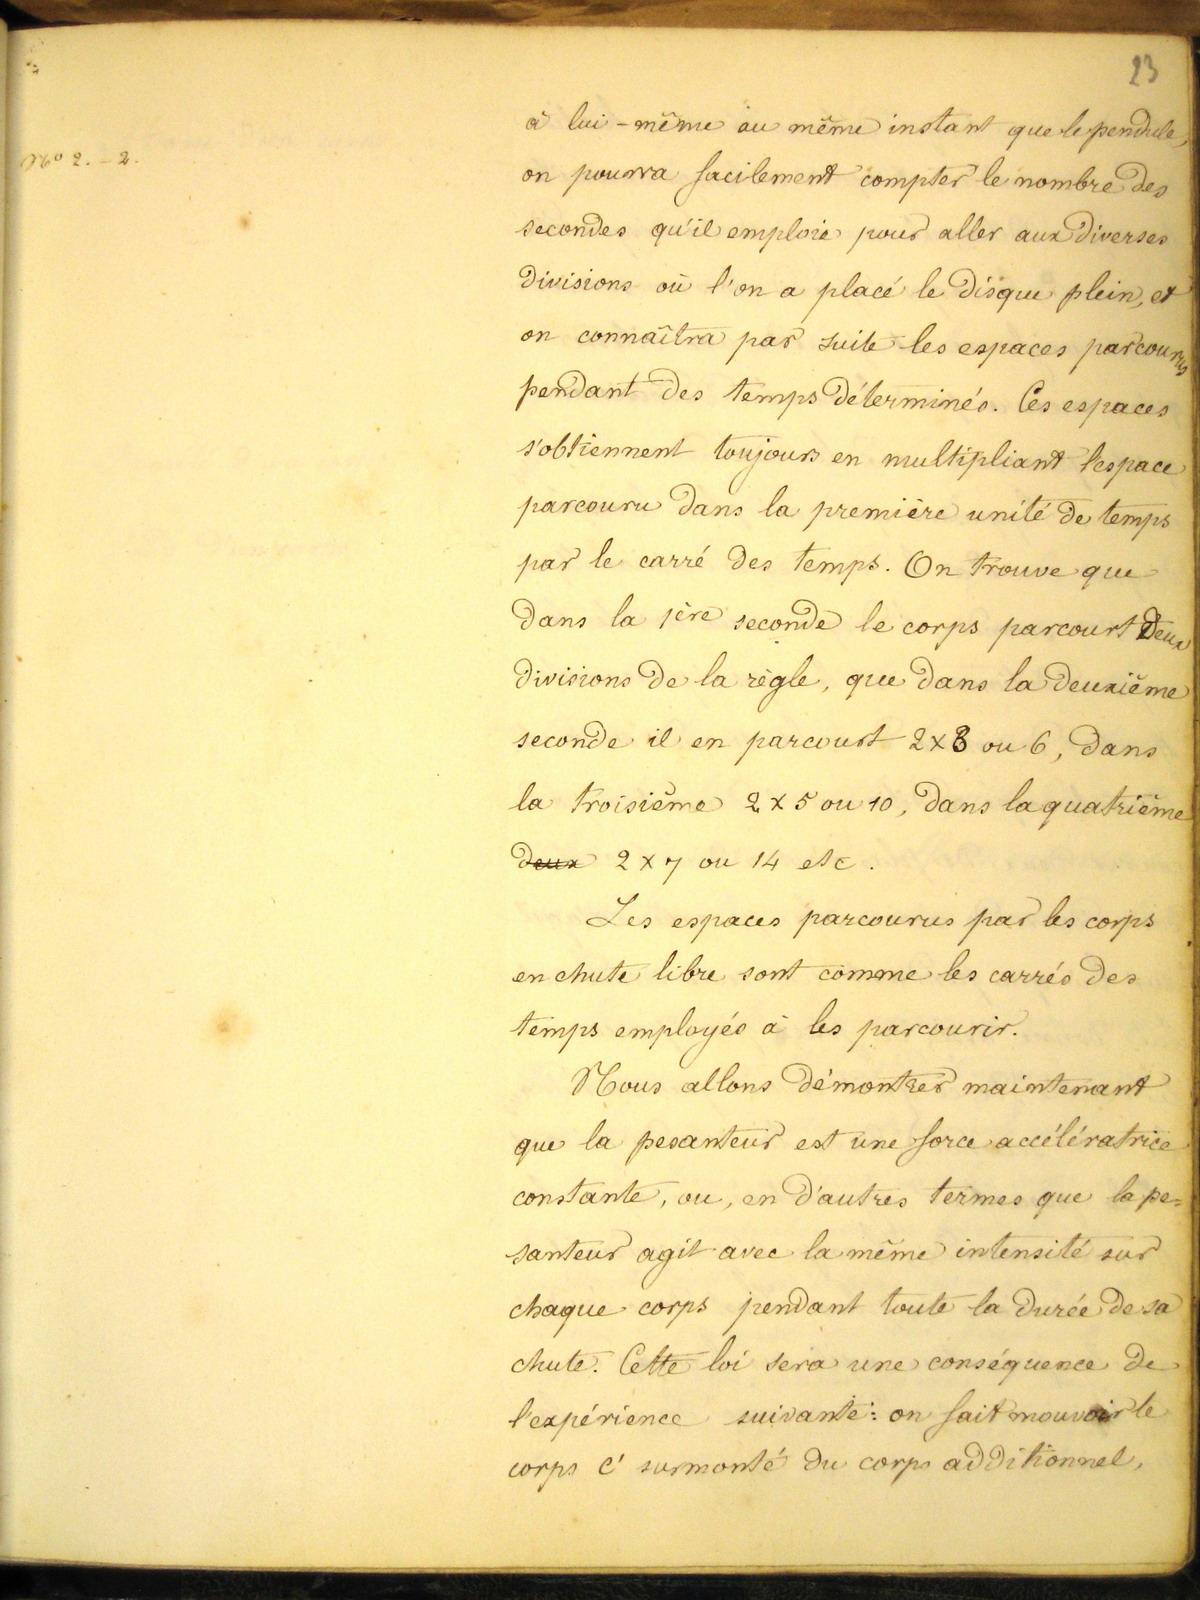 23
à lui-même au même instant que le pendule,
No 2. - 2.
on pourra facilement compter le nombre des
secondes qu'il emploie pour aller aux diverses
divisions où l'on a placé le disque plein, et
on connaîtra par suite les espaces parcourus
pendant des temps déterminés. Ces espaces
s'obtiennent toujours en multipliant l'espace
parcouru dans la première unité de temps
par le carré des temps. On trouve que
dans la 1ère seconde le corps parcourt deux
divisions de la règle, que dans la deuxième
seconde il en parcourt 2x3 ou 6, dans
la troisième 2x5 ou 10, dans la quatrième
deux 2x7 ou 14 etc.
Les espaces parcourus par les corps
en chute libre sont comme les carrés des
temps employés à les parcourir.
Nous allons démontrer maintenant
que la pesanteur est une force accélératrice
constante, ou, en d'autres termes que la pe=
santeur agit avec la même intensité sur
chaque corps pendant toute la durée de sa
chute. Cette loi sera une conséquence de
l'expérience suivante: on fait mouvoir le
corps C' surmonté du corps additionnel,